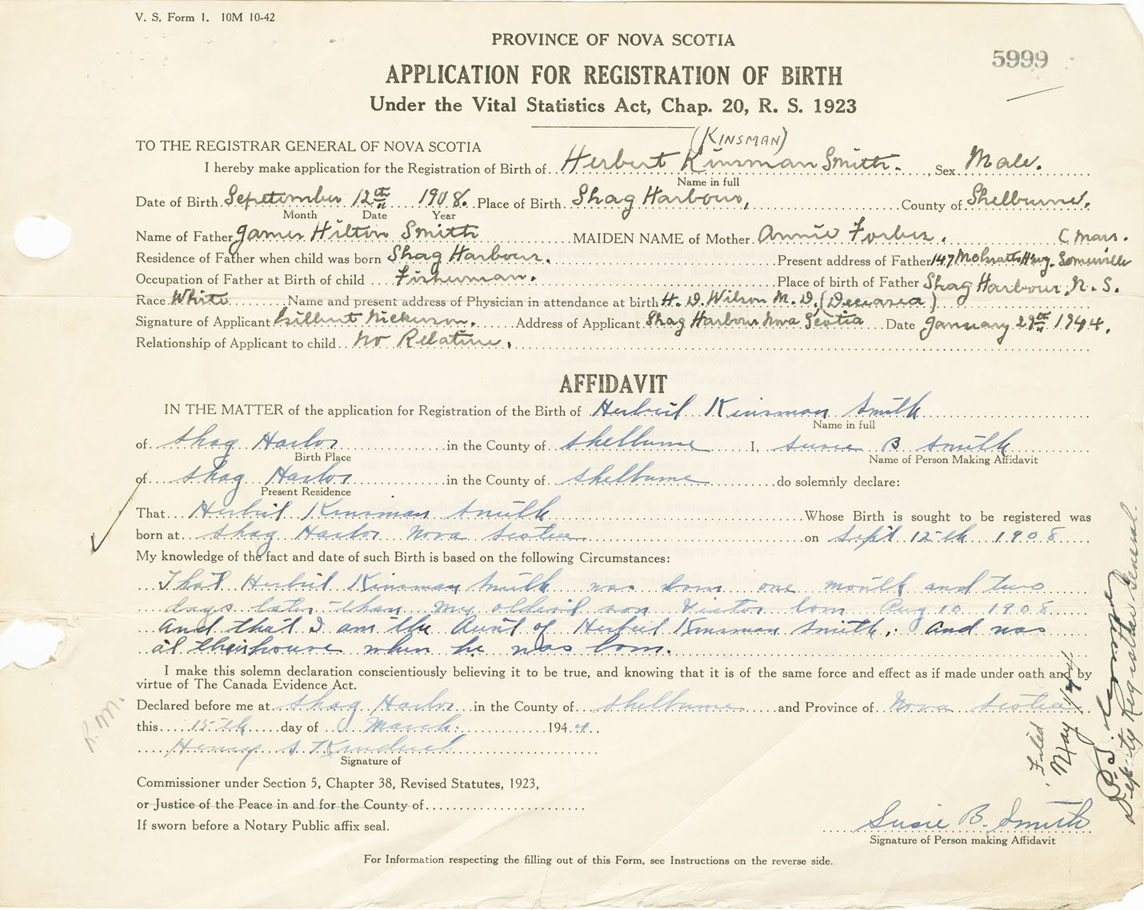 V. S. Form 1. 10M 10-42
PROVINCE OF NOVA SCOTIA
5999
APPLICATION FOR REGISTRATION OF BIRTH
Under the Vital Statistics Act, Chap. 20, R. S. 1923
(KINSMAN)
TO THE REGISTRAR GENERAL OF NOVA SCOTIA
I hereby make application for the Registration of Birth of Herbert Kinsman Smith. Sex Male.
Name in full
Date of Birth September 12th 1908. Place of Birth Shag Harbour, County of Shelburne.
Month Date Year
Name of Father James Hilton Smith MAIDEN NAME of Mother Annie Forbes.
Residence of Father when child was born Shag Harbour. Present address of Father 147 Hwy. Somerville
Occupation of Father at Birth of child Fisherman. Place of birth of Father Shag Harbour, N. S.
Race White Name and present address of Physician in attendance at birth H. D. Wilson M. D. (Deceased)
Signature of Applicant Gilbert Nickerson. Address of Applicant Shag Harbour Nova Scotia Date January 29th 1944.
Relationship of Applicant to child No Relative.
AFFIDAVIT
IN THE MATTER of the application for Registration of the Birth of Herbert Kinsman Smith
Name in full
of Shag Harbor in the County of Shelburne I, Susie B Smith
Birth Place Name of Person Making Affidavit
of Shag Harbor in the County of Shelburne do solemnly declare:
Present Residence
That Herbert Kinsman Smith Whose Birth is sought to be registered was
born at Shag Harbor Nova Scotia on Sept 12th 1908
My knowledge of the fact and date of such Birth is based on the following Circumstances:
That Herbert Kinsman Smith was born one month and two
days later than my oldest son Victor born Aug 10 1908
And that I am the Aunt of Herbert Kinsman Smith. And was
at their house when he was born.
I make this solemn declaration conscientiously believing it to be true, and knowing that it is of the same force and effect as if made under oath and by
virtue of The Canada Evidence Act.
Declared before me at Shag Harbor in the County of Shelburne and Province of Nova Scotia
this 15th day of March 1944
Henry S.
Signature of
Commissioner under Section 5, Chapter 38, Revised Statutes, 1923,
or Justice of the Peace in and for the County of
If sworn before a Notary Public affix seal.
Susie B. Smith
Signature of Person making Affidavit
For Information respecting the filling out of this Form, see Instructions on the reverse side.
R.M.
Filed
May 1/44
Deputy Registrar General.